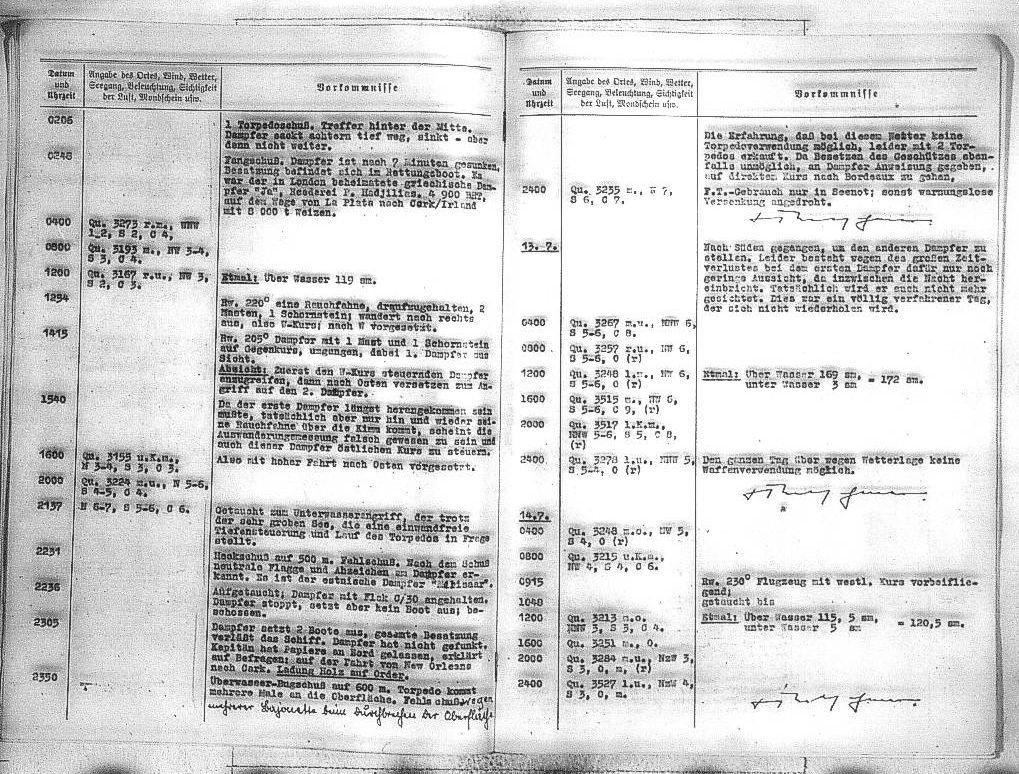 Datum
und
Uhrzeit
Angabe des Ortes, Wind, Wetter,
Seegang, Beleuchtung, Sichtigkeit
der Luft, Mondschein usw.
Vorkommnisse
0206
1 Torpedoschuß. Treffer hinter der Mitte.
Dampfer sackt achtern tief weg, sinkt - aber
dann nicht weiter.
0248
Fangschuß. Dampfer ist nach 7 Minuten gesunken,
Besatzung befindet sich im Rettungsboot. Es
war der in London beheimatete griechische Dam-
pfer "Ja", Reederei F. Hadjilias, 4 900 BRT,
auf dem Wege von La Plata nach Cork/Irland
mit 8 000 t Weizen.
0400
Qu. 3273 r.m., WNW
1_2, S 2, C 4,
0800
Qu. 3193 m., NW 3-4,
S 3, C 4.
1200
Qu. 3167 r.u., NW 3,
S 2, C 3.
Etmal: Über Wasser 119 sm.
1254
Rw. 220° eine Rauchfahne, draufzugehalten, 2
Masten, 1 Schornstein; wandert nach rechts
aus, also W-Kurs; nach W vorgesetzt.
1415
Rw. 205° Dampfer mit 1 Mast und 1 Schornstein
auf Gegenkurs, umgangen, dabei 1. Dampfer aus
Sicht.
Absicht: Zuerst den W-Kurs steuernden Dampfer
anzugreifen, dann nach Osten versetzen zum An-
griff auf den 2. Dampfer.
1540
Da der erste Dampfer längst herangekommen sein
müßte, tatsächlich aber nur hin und wieder sei-
ne Rauchfahne über die Kimm kommt, scheint die
Auswanderungsmessung falsch gewesen zu sein und
auch dieser Dampfer östlichen Kurs zu steuern.
1600
Qu. 3155 u.K.m.,
N 3-4, S 3, C 3.
Also mit hoher Fahrt nach Osten vorgesetzt.
2000
Qu. 3224 m.u., N 5-6,
S 4-5, C 4.
2137
N 6-7, S 5-6, C 6.
Getaucht zum Unterwasserangriff, der trotz
der sehr groben See, die eine einwandfreie
Tiefensteuerung und Lauf des Torpedos in Frage
stellt.
2231
Heckschuß auf 500 m. Fehlschuß. Nach dem Schuß
neutrale Flagge und Abzeichen am Dampfer er-
kannt. Es ist der estnische Dampfer
2236
Aufgetaucht; Dampfer mit Flak C/30 angehalten.
Dampfer stoppt, setzt aber kein Boot aus; be-
schossen.
2305
Dampfer setzt 2 Boote aus, gesamte Besatzung
verläßt das Schiff. Dampfer hat nicht gefunkt.
Kapitän hat Papiere an Bord gelassen, erklärt
auf Befragen: auf der Fahrt von New Orleans
nach Cork. Ladung Holz auf Order.
2350
Überwasser-Bugschuß auf 600 m. Torpedo kommt
mehrere Male an die Oberfläche. Fehlschuß wegen
mehrerer beim Durchbrechen der Oberfläche
Datum
und
Uhrzeit
Angabe des Ortes, Wind, Wetter,
Seegang, Beleuchtung, Sichtigkeit
der Luft, Mondschein usw.
Vorkommnisse
Die Erfahrung, daß bei diesem Wetter keine
Torpedoverwendung möglich, leider mit 2 Tor-
pedos erkauft. Da Besetzen des Geschützes eben-
falls unmöglich, an Dampfer Anweisung gegeben,
auf direktem Kurs nach Bordeaux zu gehen.
2400
Qu. 3235 m., N 7,
S 6, C 7.
F.T.-Gebrauch nur in Seenot; sonst warnungslose
Versenkung angedroht.
13. 7.
Nach Süden gegangen, um den anderen Dampfer zu
stellen. Leider besteht wegen des großen Zeit-
verlustes bei dem ersten Dampfer dafür nur noch
geringe Aussicht, da inzwischen die Nacht her-
einbricht. Tatsächlich wird er auch nicht mehr
gesichtet. Dies war ein völlig verfahrener Tag,
der sich nicht wiederholen wird.
0400
Qu. 3267 m.u., NNW 6,
S 5-6, C 8.
0800
Qu. 3257 r.u., NW 6,
S 5-6, O (r)
1200
Qu. 3248 l.u., NW 6,
S 5-6, O (r)
Etmal: Über Wasser 169 sm,
unter Wasser 3 sm
= 172 sm.
1600
Qu. 3515 m., NW 6,
S 5-6, C 9, (r)
2000
Qu. 3517 l.K.m.,
NNW 5-6, S 5, C 8,
(r)
2400
Qu. 3278 l.u., NNW 5,
S 5-4, O (r)
Den ganzen Tag über wegen Wetterlage keine
Waffenverwendung möglich.
14.7.
0400
Qu. 3248 m.o., NW 5,
S 4, O (r)
0800
Qu. 3215 u.K.m.,
NW 4, S 4, C 6.
0915
Rw. 230° Flugzeug mit westl. Kurs vorbeiflie-
gend;
1048
getaucht bis
1200
Qu. 3213 m.o.
NNW 3, S 3, C 4.
Etmal: Über Wasser 115, 5 sm,
unter Wasser 5 sm
= 120,5 sm.
1600
Qu. 3251 m., O.
2000
Qu. 3284 m.u., NzW 3,
S 3, O, m, (r)
2400
Qu. 3527 l.u., NzW 4,
S 3, O, m.